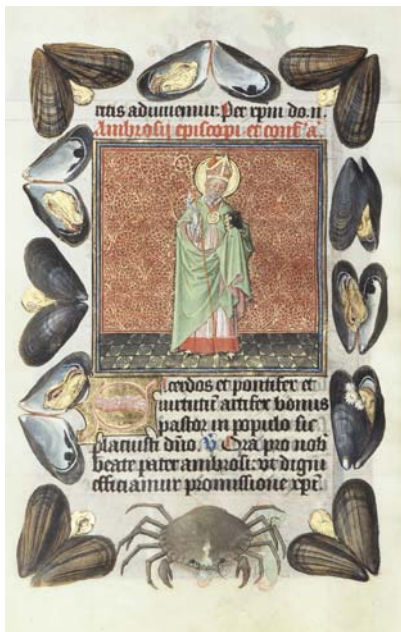 titis adiuuemur. Per xpm do. n.
Ambrosij episcopi et conf' a'.
Sacerdos et pontifex et
virtutu artifex bonus
pastor in populo sic
placuisti dno. V Ora pro nob
beate pater ambrosi. vt digni
efficiamur promissione xpi